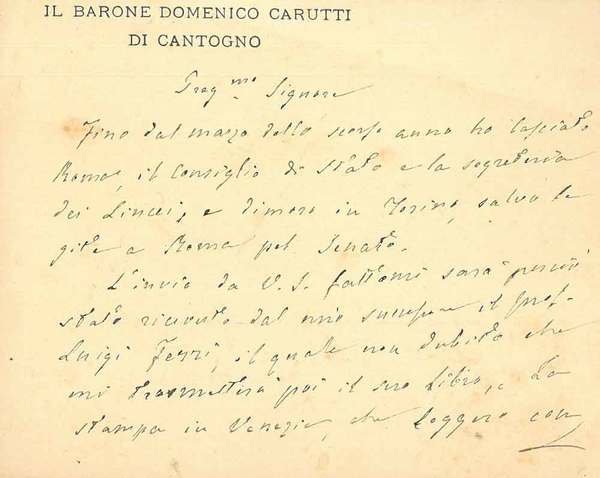 IL BARONE DOMENICO CARUTTI
DI CANTOGNO
Preg.mo Signore
Fino dal marzo dello scorso anno ho lasciato
Roma, il Consiglio di Stato e la segreteria
dei Lincei, e dimoro in Torino, salvo le
gite a Roma pel Senato.
L'invio da V. S. fattomi sarà perciò
stato ricevuto dal mio successore il prof.
Luigi Ferri, il quale non dubito che
mi trasmetterà poi il suo libro, La
stampa in Venezia, che leggerò con